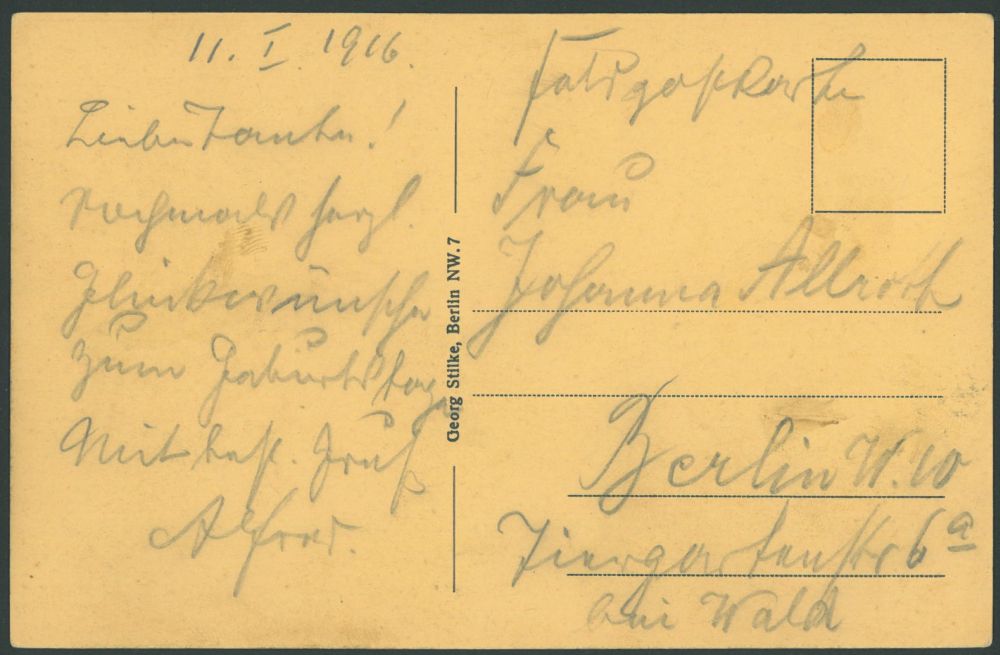 11. I. 1916.
Liebe Tante!
Nochmals herzl.
Glückwünsche
zum Geburtstag
Mit best. Gruß
Alfred.
Georg Stilke, Berlin NW. 7
Feldpostkarte
Frau
Johanna
Berlin W. 10
Tiergartenstr 6a
bei Wald